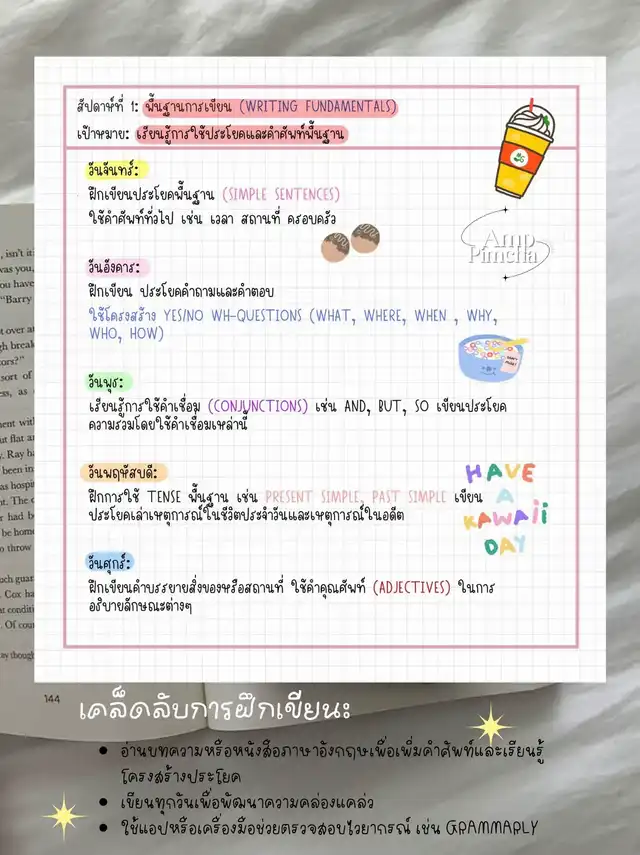 สัปดาห์ที่ 1: พื้นฐานการเขียน (WRITING FUNDAMENTALS)
เป้าหมาย: เรียนรู้การใช้ประโยคและคำศัพท์พื้นฐาน
วันจันทร์:
ฝึกเขียนประโยคพื้นฐาน (SIMPLE SENTENCES)
ใช้คำศัพท์ทั่วไป เช่น เวลา สถานที่ ครอบครัว
Amp
Pimcha
วันอังคาร:
ฝึกเขียน ประโยคคำถามและคำตอบ
ใช้โครงสร้าง YES/NO WH-QUESTIONS (WHAT, WHERE, WHEN , WHY,
WHO, HOW)
วันพุธ:
เรียนรู้การใช้คำเชื่อม (CONJUNCTIONS) เช่น AND, BUT, SO เขียนประโยค
ความรวมโดยใช้คำเชื่อมเหล่านี้
วันพฤหัสบดี:
ฝึกการใช้ TENSE พื้นฐาน เช่น PRESENT SIMPLE, PAST SIMPLE เขียน
ประโยคเล่าเหตุการณ์ในชีวิตประจำวันและเหตุการณ์ในอดีต
HAVE
A
KAWAII
DAY
วันศุกร์:
ฝึกเขียนคำบรรยายสิ่งของหรือสถานที่ ใช้คำคุณศัพท์ (ADJECTIVES) ในการ
อธิบายลักษณะต่างๆ
144
เคล็ดลับการฝึกเขียน:
อ่านบทความหรือหนังสือภาษาอังกฤษเพื่อเพิ่มคำศัพท์และเรียนรู้
โครงสร้างประโยค
เขียนทุกวันเพื่อพัฒนาความคล่องแคล่ว
ใช้แอปหรือเครื่องมือช่วยตรวจสอบไวยากรณ์ เช่น GRAMMARLY